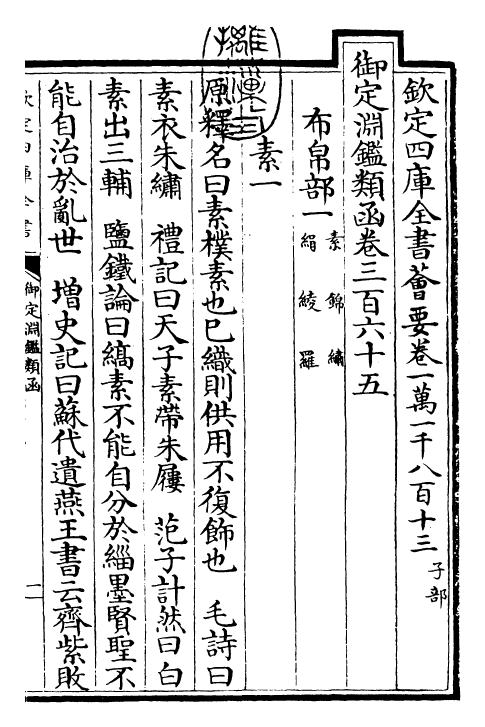 欽定四庫全書薈要卷一萬一千八百十三 子部
御定淵鑑類函卷三百六十五
布帛部一 素 錦 繡
絹 綾 羅
素一
原釋名曰素樸素也已織則供用不復飾也 毛詩曰
素衣朱繡 禮記曰天子素帶朱裏 范子計然曰白
素出三輔 鹽鐵論曰縞素不能自分於緇墨賢聖不
能自治於亂世 增史記曰蘇代遺燕王書云齊紫敗
欽定四庫全書
御定淵鑑類函